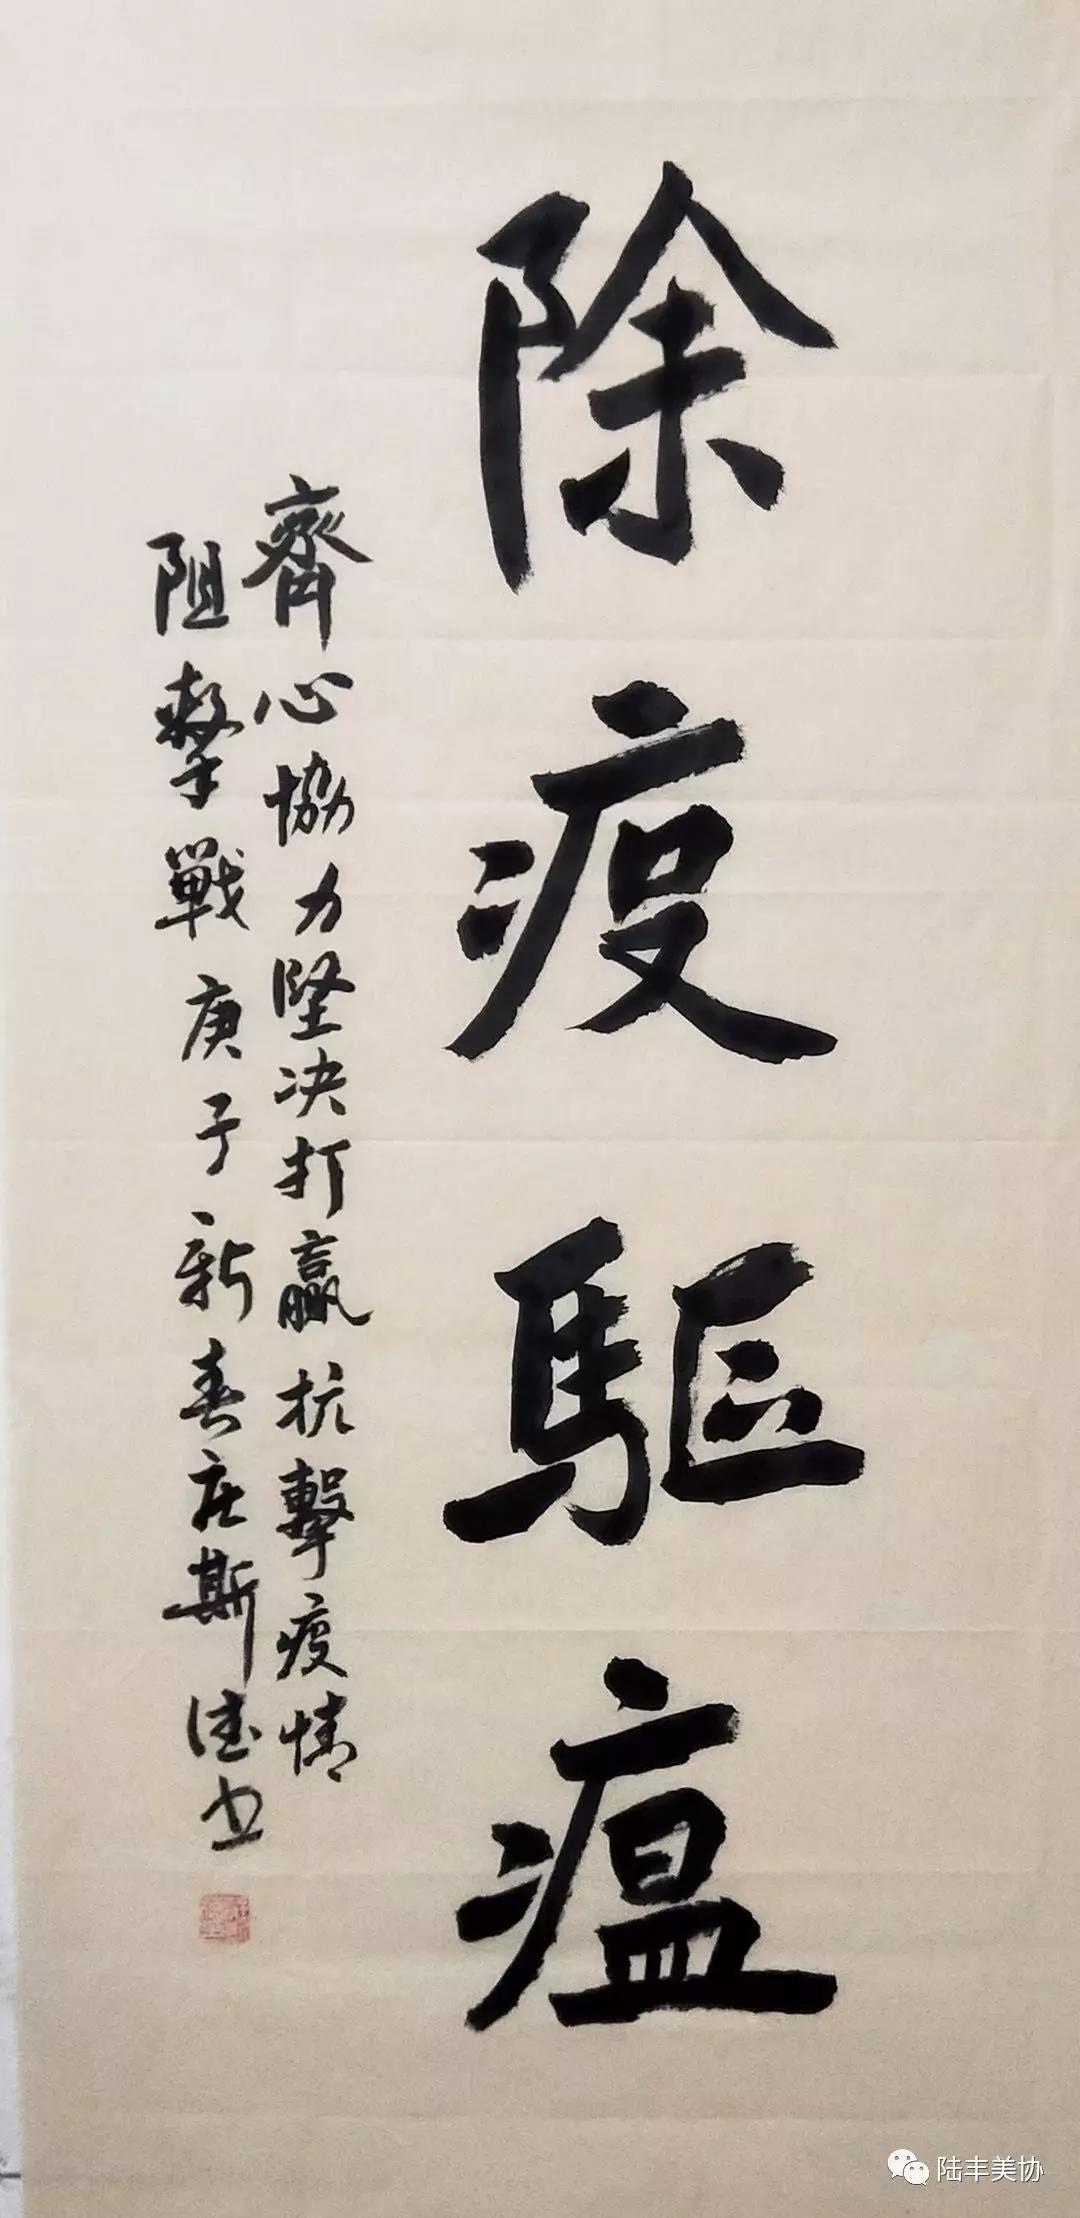 除疫驱瘟
齊心協力堅决打贏抗擊疫情
阻擊戰庚子新春庄斯德书
陆丰美协